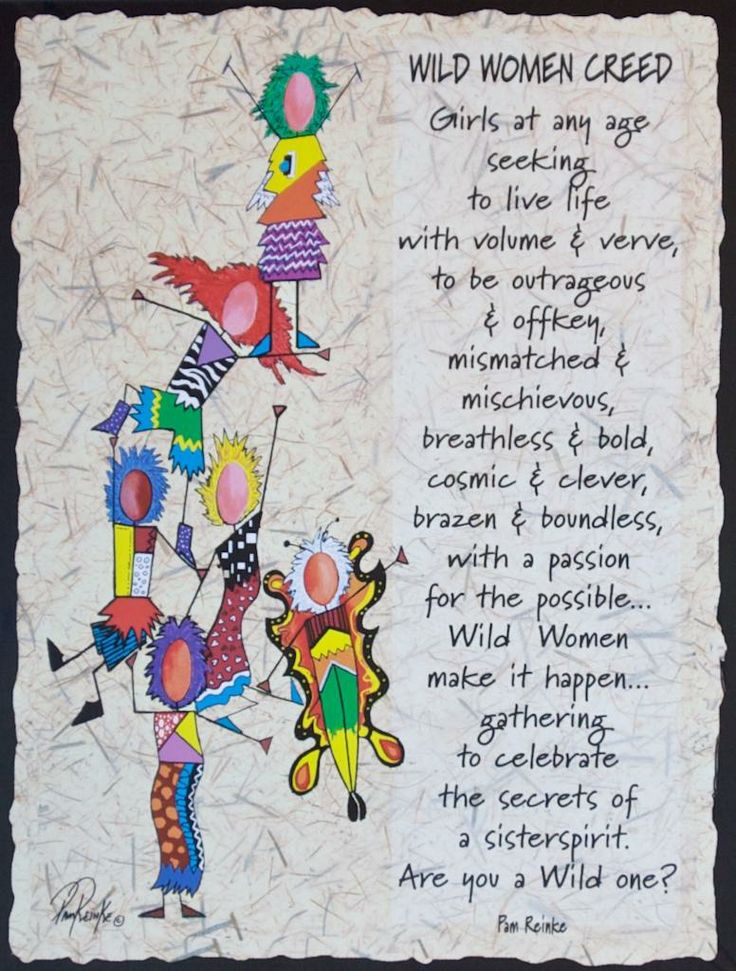 WILD WOMEN CREED
Girls at any age
seeking
to live life
with volume & verve,
to be outrageous
& offkey,
mismatched &
mischievous,
breathless & bold,
cosmic & clever,
brazen & boundless,
with a passion
for the possible...
Wild Women
make it happen...
gathering
to celebrate
the secrets of
a sisterspirit.
Are you a Wild one?
Pam Reinke
Pam Reinke ©